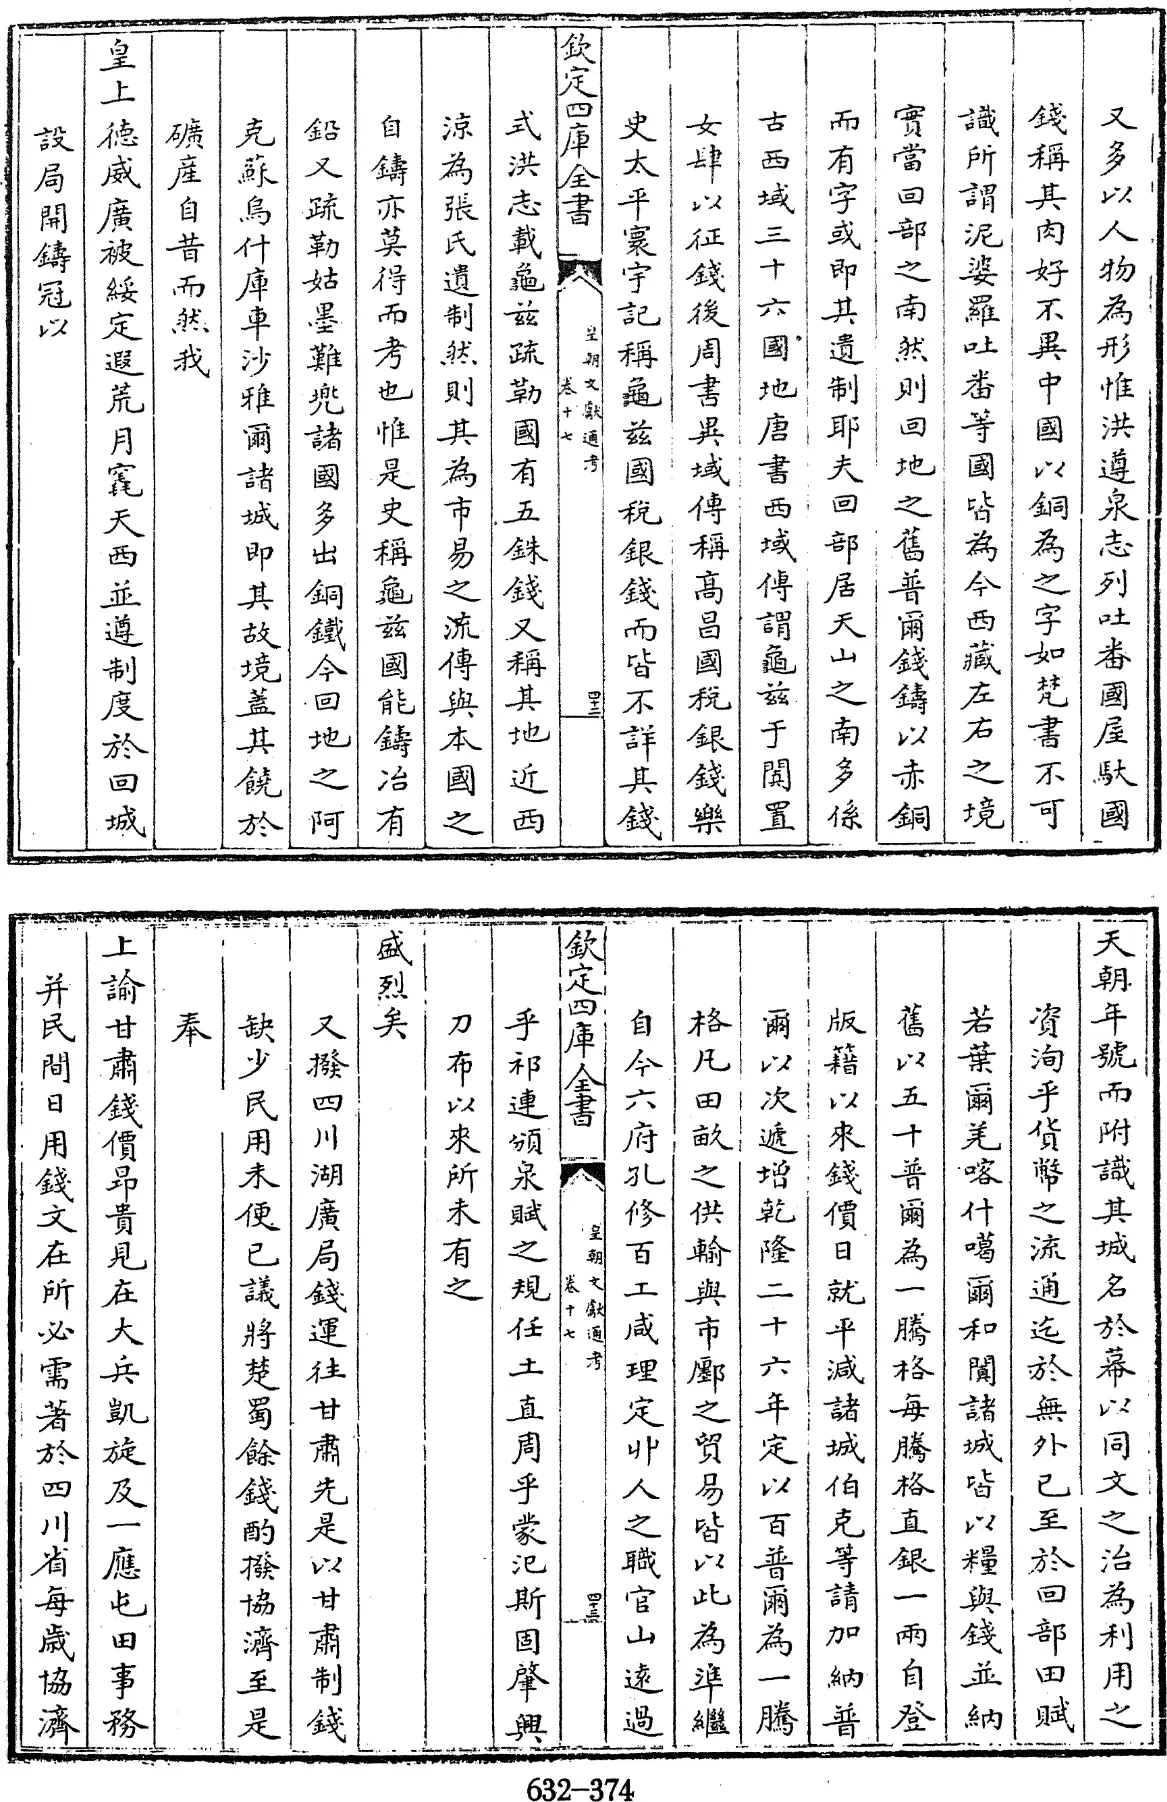 又多以人物為形惟洪遵泉志列吐番國屋馱國
錢稱其肉好不異中國以銅為之字如梵書不可
識所謂泥婆羅吐番等國皆為今西藏左右之境
實當回部之南然則回地之舊普爾錢鑄以赤銅
而有字或即其遺制耶夫回部居天山之南多係
古西域三十六國地唐書西域傳謂龜茲于闐置
女肆以征錢後周書異域傳稱髙昌國稅銀錢樂
史太平寰宇記稱龜茲國稅銀錢而皆不詳其錢
欽定四庫全書
皇朝文獻通考
卷十七
四十三
式洪志載龜茲疏勒國有五銖錢又稱其地近西
涼為張氏遺制然則其為市易之流傳與本國之
自鑄亦莫得而考也惟是史稱龜茲國能鑄冶有
鉛又疏勒姑墨難兜諸國多出銅鐵今回地之阿
克蘇烏什庫車沙雅爾諸城即其故境蓋其饒於
礦産自昔而然我
皇上德威廣被綏定遐荒月竁天西並遵制度於回城
設局開鑄冠以
天朝年號而附識其城名於幕以同文之治為利用之
資洵乎貨幣之流通迄於無外已至於回部田賦
若葉爾羌喀什噶爾和闐諸城皆以糧與錢並納
舊以五十普爾為一騰格每騰格直銀一兩自登
版籍以來錢價日就平減諸城伯克等請加納普
爾以次遞增乾隆二十六年定以百普爾為一騰
格凡田畝之供輸與市鄽之貿易皆以此為準繼
自今六府孔修百工咸理定丱人之職官山逺過
欽定四庫全書
皇朝文獻通考
卷十七
四十三
乎祁連頒泉賦之規任土直周乎蒙汜斯固肇興
刀布以來所未有之
盛烈矣
又撥四川湖廣局錢運往甘肅先是以甘肅制錢
缺少民用未便已議將楚蜀餘錢酌撥協濟至是
奉
上諭甘肅錢價昂貴見在大兵凱旋及一應屯田事務
并民間日用錢文在所必需著於四川省每歲協濟
632-374